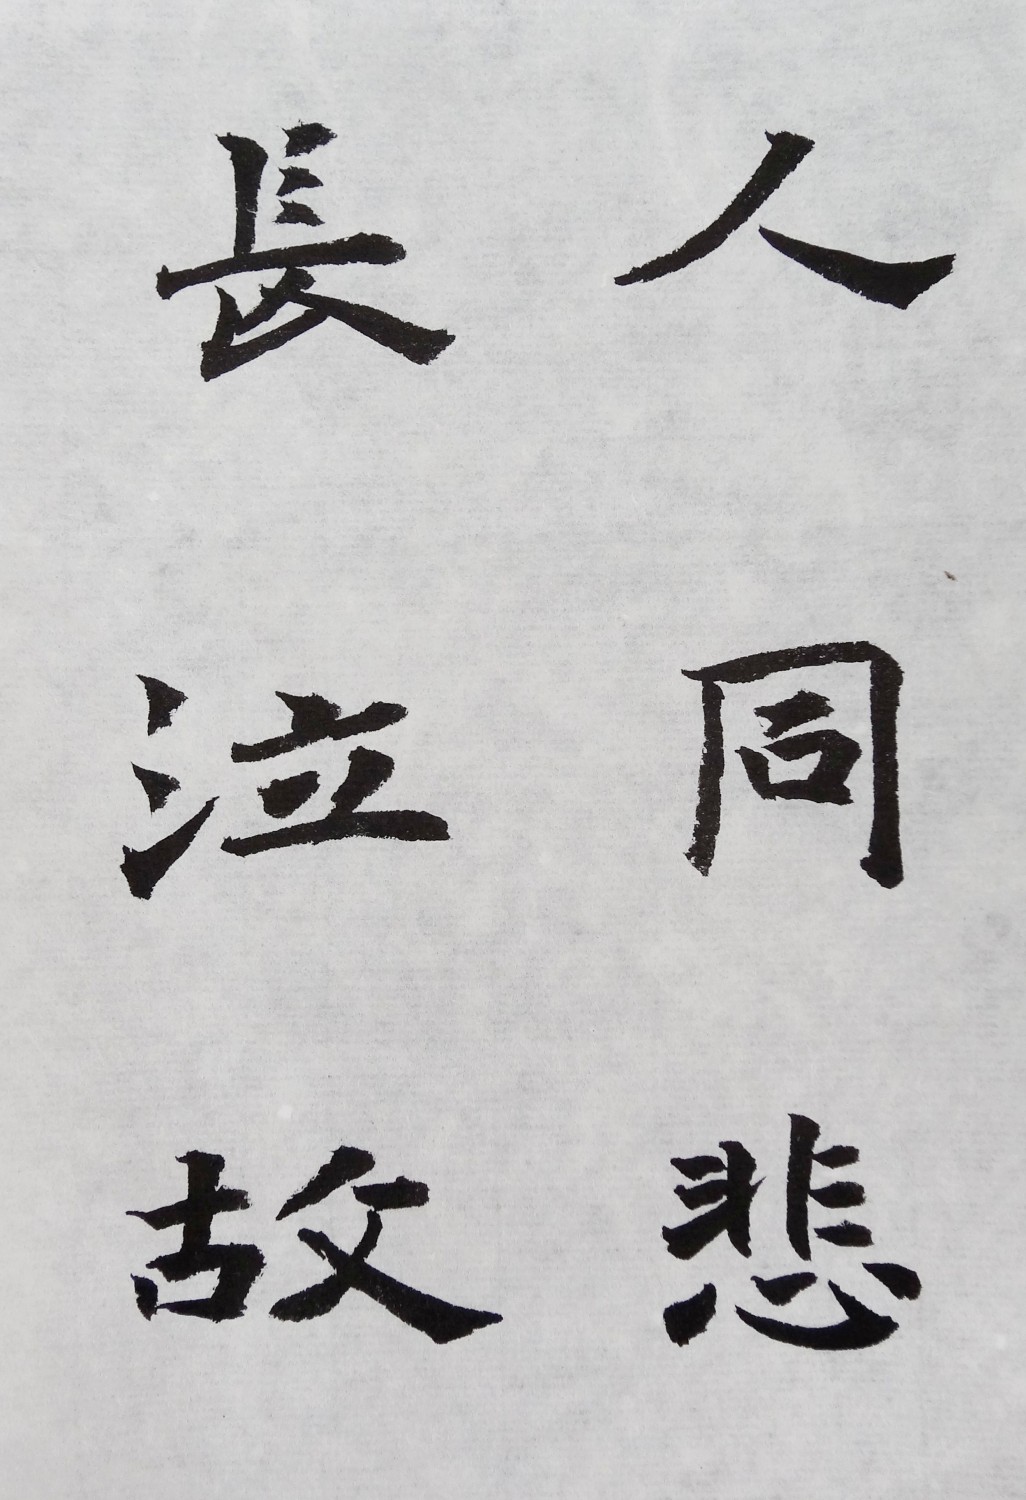 人同悲
長泣故